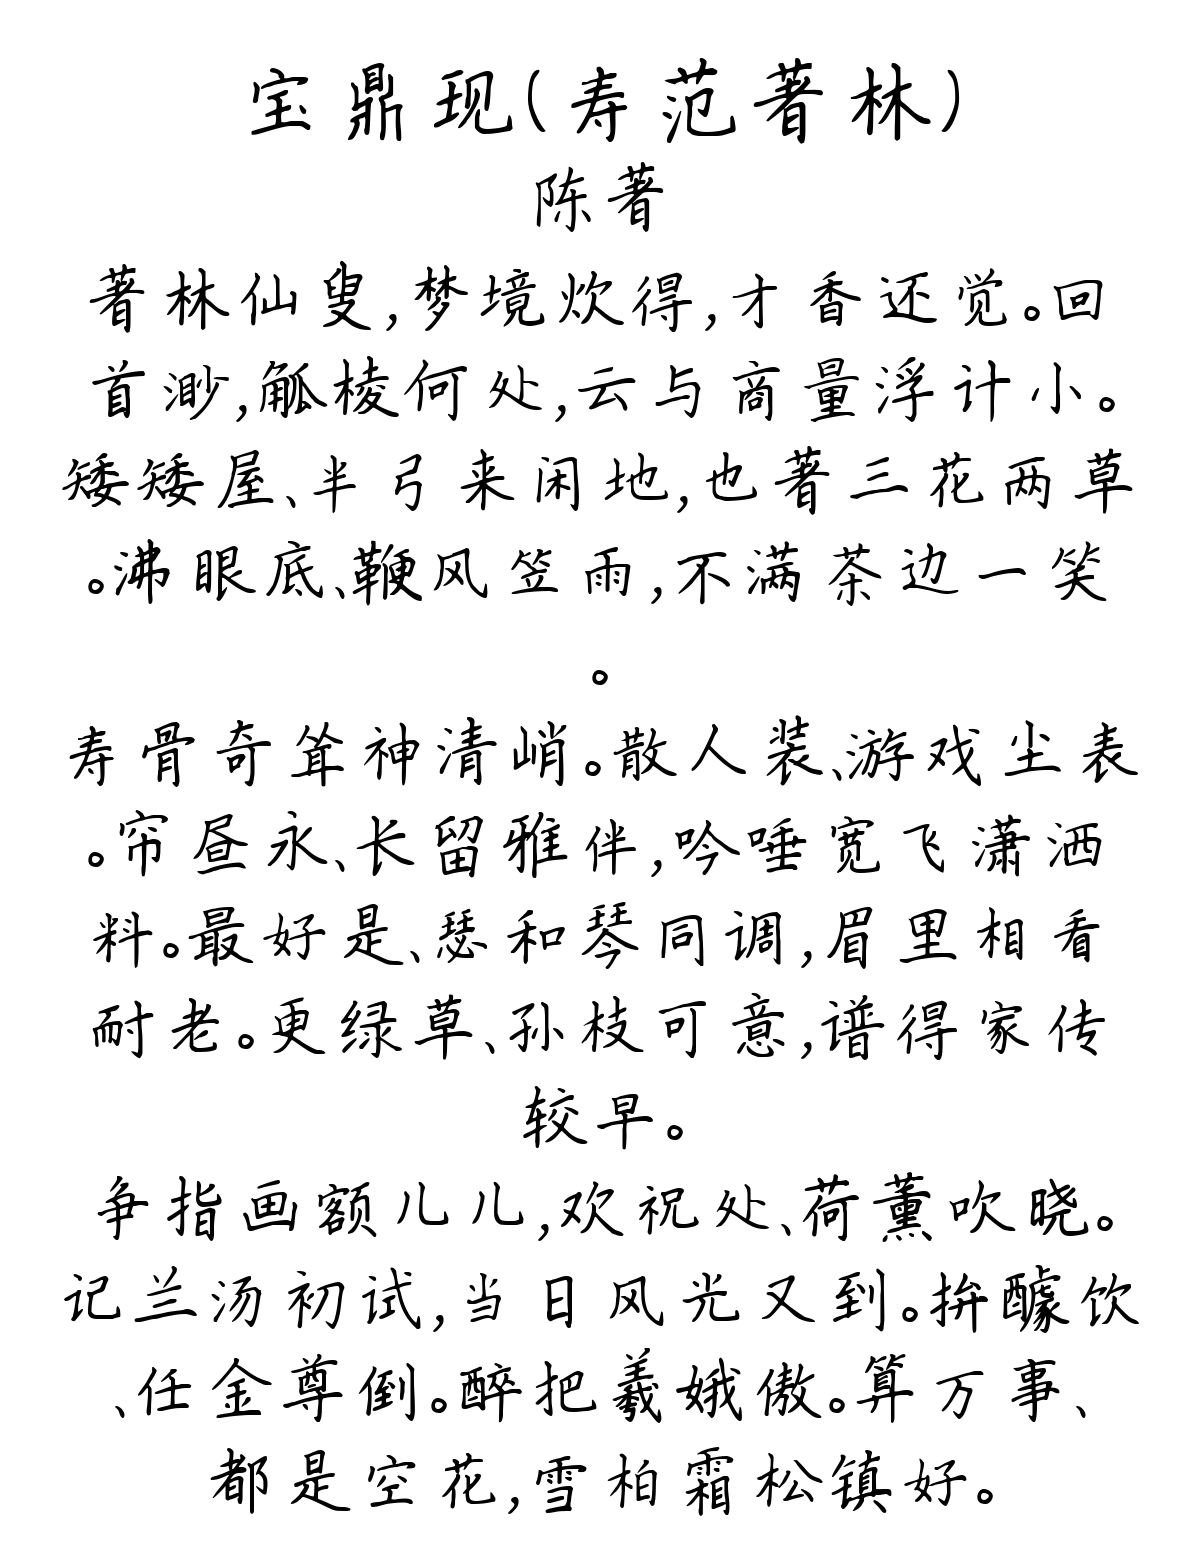 宝鼎现(寿范著林)
陈著
著林仙叟,梦境炊得,才香还觉。回
首渺,觚棱何处,云与商量浮计小。
矮矮屋、半弓来闲地,也著三花两草
。沸眼底、鞭风笠雨,不满茶边一笑
。
寿骨奇耸神清峭。散人装、游戏尘表
。帘昼永、长留雅伴,吟唾宽飞潇洒
料。最好是、瑟和琴同调,眉里相看
耐老。更绿草、孙枝可意,谱得家传
较早。
争指画额儿儿,欢祝处、荷薰吹晓。
记兰汤初试,当日风光又到。拚醵饮
、任金尊倒。醉把羲娥傲。算万事、
都是空花,雪柏霜松镇好。